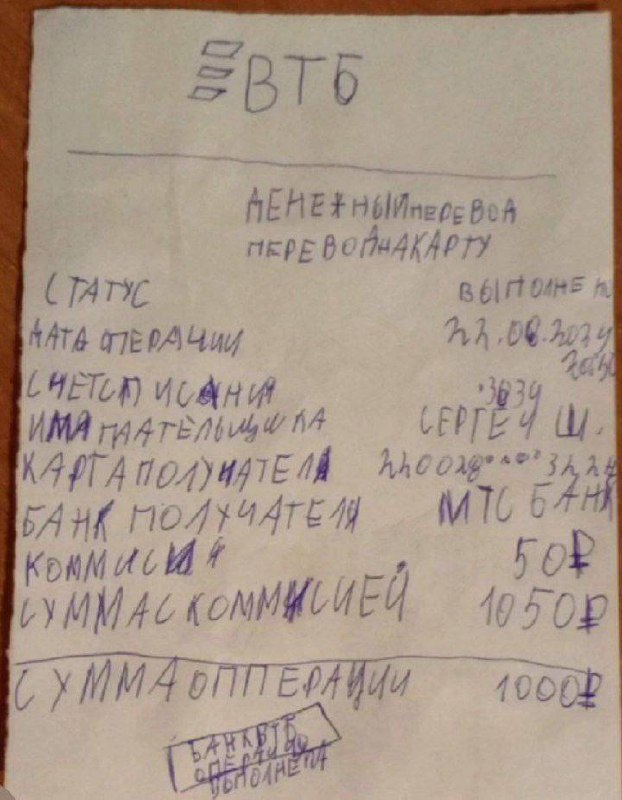 ВТБ
ДЕНЕЖНЫЙ ПЕРЕВОД
ПЕРЕВОД НА КАРТУ
СТАТУС ВЫПОЛНЕНО
ДАТА ОПЕРАЦИИ 22.08.2024
СЧЕТ СПИСАНИЯ
ИМЯ ПЛАТЕЛЬЩИКА СЕРГЕЙ Ш.
КАРТА ПОЛУЧАТЕЛЯ
БАНК ПОЛУЧАТЕЛЯ МТС БАНК
КОММИСИЯ 50₽
СУММА С КОММИСИЕЙ 1050₽
СУММА ОППЕРАЦИИ 1000₽
БАНК ВТБ
ОПЕРАЦИЯ
ВЫПОЛНЕНА